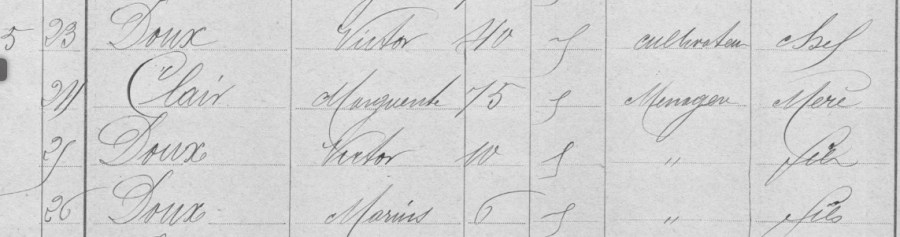 5 23 Doux Victor 40 f cultivateur Chef
24 Clair Marguerite 75 f Menagere Mere
25 Doux Victor 10 f " fils
26 Doux Marius 6 f " fils